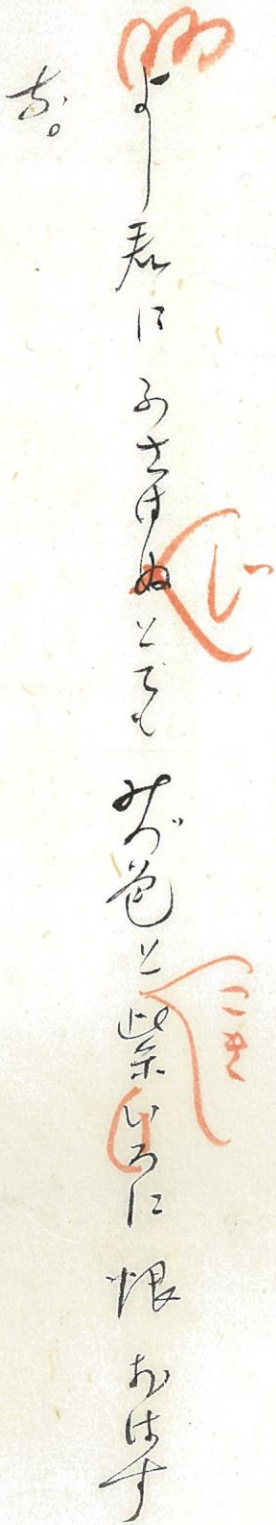 よし君にふさはぬとても みづ色と紫いろに 恨おはす
な。
じ
こき